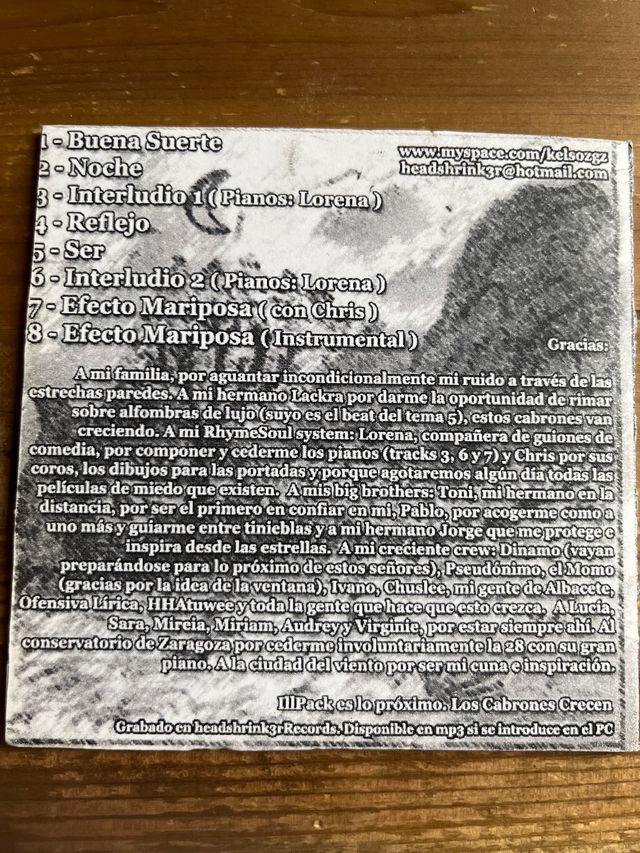 1 - Buena Suerte
2 - Noche
3 - Interludio 1 ( Pianos: Lorena )
4 - Reflejo
5 - Ser
6 - Interludio 2 ( Pianos: Lorena )
7 - Efecto Mariposa ( con Chris )
8 - Efecto Mariposa ( Instrumental )
www.myspace.com/kelsozgz
headshrink3r@hotmail.com
Gracias:
A mi familia, por aguantar incondicionalmente mi ruido a través de las
estrechas paredes. A mi hermano Lackra por darme la oportunidad de rimar
sobre alfombras de lujo (suyo es el beat del tema 5), estos cabrones van
creciendo. A mi RhymeSoul system: Lorena, compañera de guiones de
comedia, por componer y cederme los pianos (tracks 3, 6 y 7) y Chris por sus
coros, los dibujos para las portadas y porque agotaremos algún día todas las
películas de miedo que existen. A mis big brothers: Toni, mi hermano en la
distancia, por ser el primero en confiar en mi, Pablo, por acogerme como a
uno más y guiarme entre tinieblas y a mi hermano Jorge que me protege e
inspira desde las estrellas. A mi creciente crew: Dinamo (vayan
preparándose para lo próximo de estos señores), Pseudónimo, el Momo
(gracias por la idea de la ventana), Ivano, Chuslee, mi gente de Albacete,
Ofensiva Lírica, HHAtuwee y toda la gente que hace que esto crezca. A Lucía,
Sara, Mireia, Miriam, Audrey y Virginie, por estar siempre ahí. Al
conservatorio de Zaragoza por cederme involuntariamente la 28 con su gran
piano. A la ciudad del viento por ser mi cuna e inspiración.
IllPack es lo próximo. Los Cabrones Crecen
Grabado en headshrink3rRecords. Disponible en mp3 si se introduce en el PC